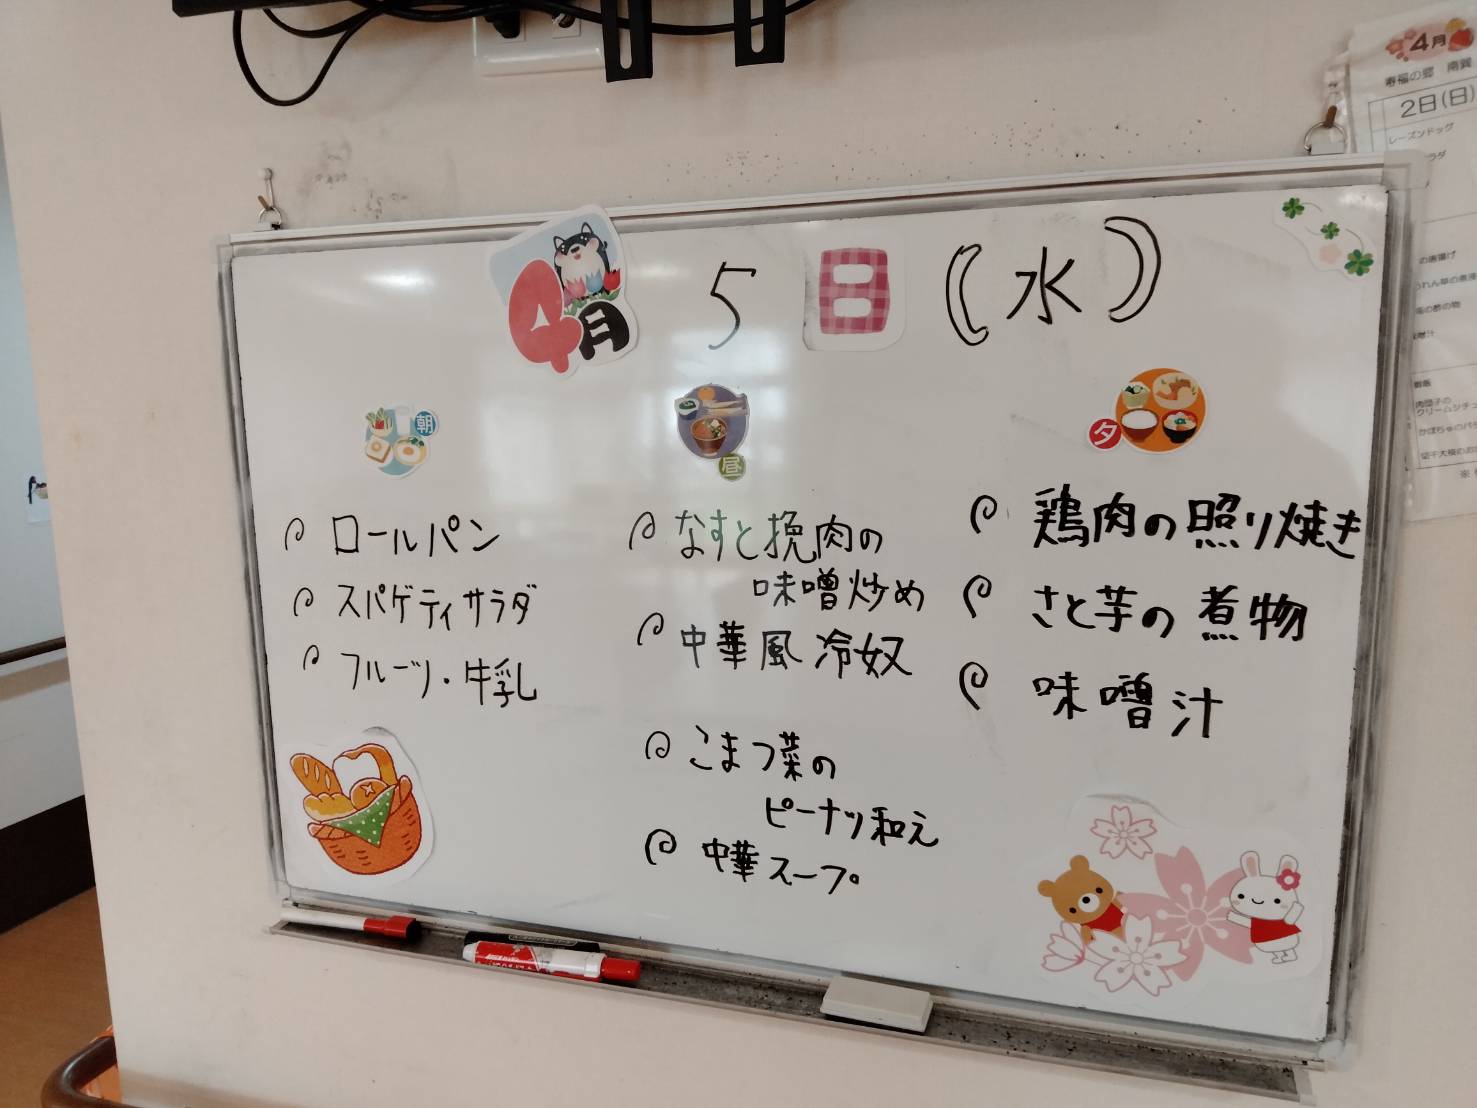 4月 5日 (水)
朝
ロールパン
スパゲティサラダ
フルーツ・牛乳
昼
なすと挽肉の
味噌炒め
中華風冷奴
こまつ菜の
ピーナツ和え
中華スープ
夕
鶏肉の照り焼き
さと芋の煮物
味噌汁
4月
寿福の郷 南巽
2日(日)
レーズンドッグ
ラダ
の唐揚げ
の酢の物
クリームシチュ
かぼちゃのバタ
切干大根のお